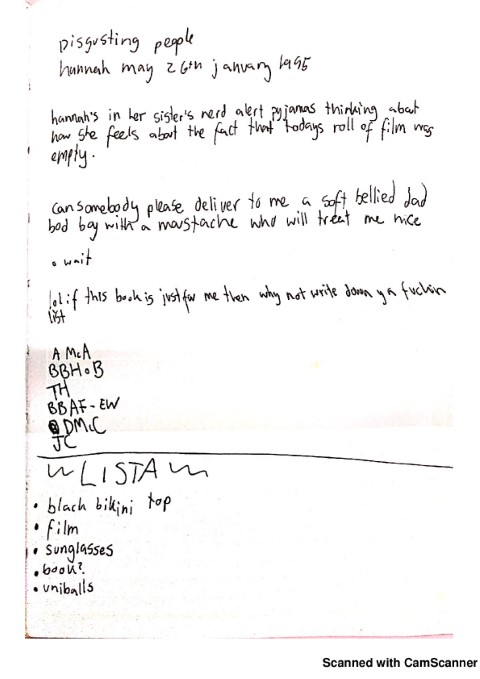 Disgusting people
hannah may 26th january 1995
hannah's in her sister's nerd alert pyjamas thinking about
how she feels about the fact that todays roll of film was
empty.
can somebody please deliver to me a soft bellied dad
bod boy with a moustache who will treat me nice
• wait
lol if this book is just for me then why not write down ya fuckin
list
A McA
BBHoB
TH
BBAF-EW
DMcC
JC
LISTA
• black bikini top
• film
• sunglasses
• book?
• uniballs
Scanned with CamScanner